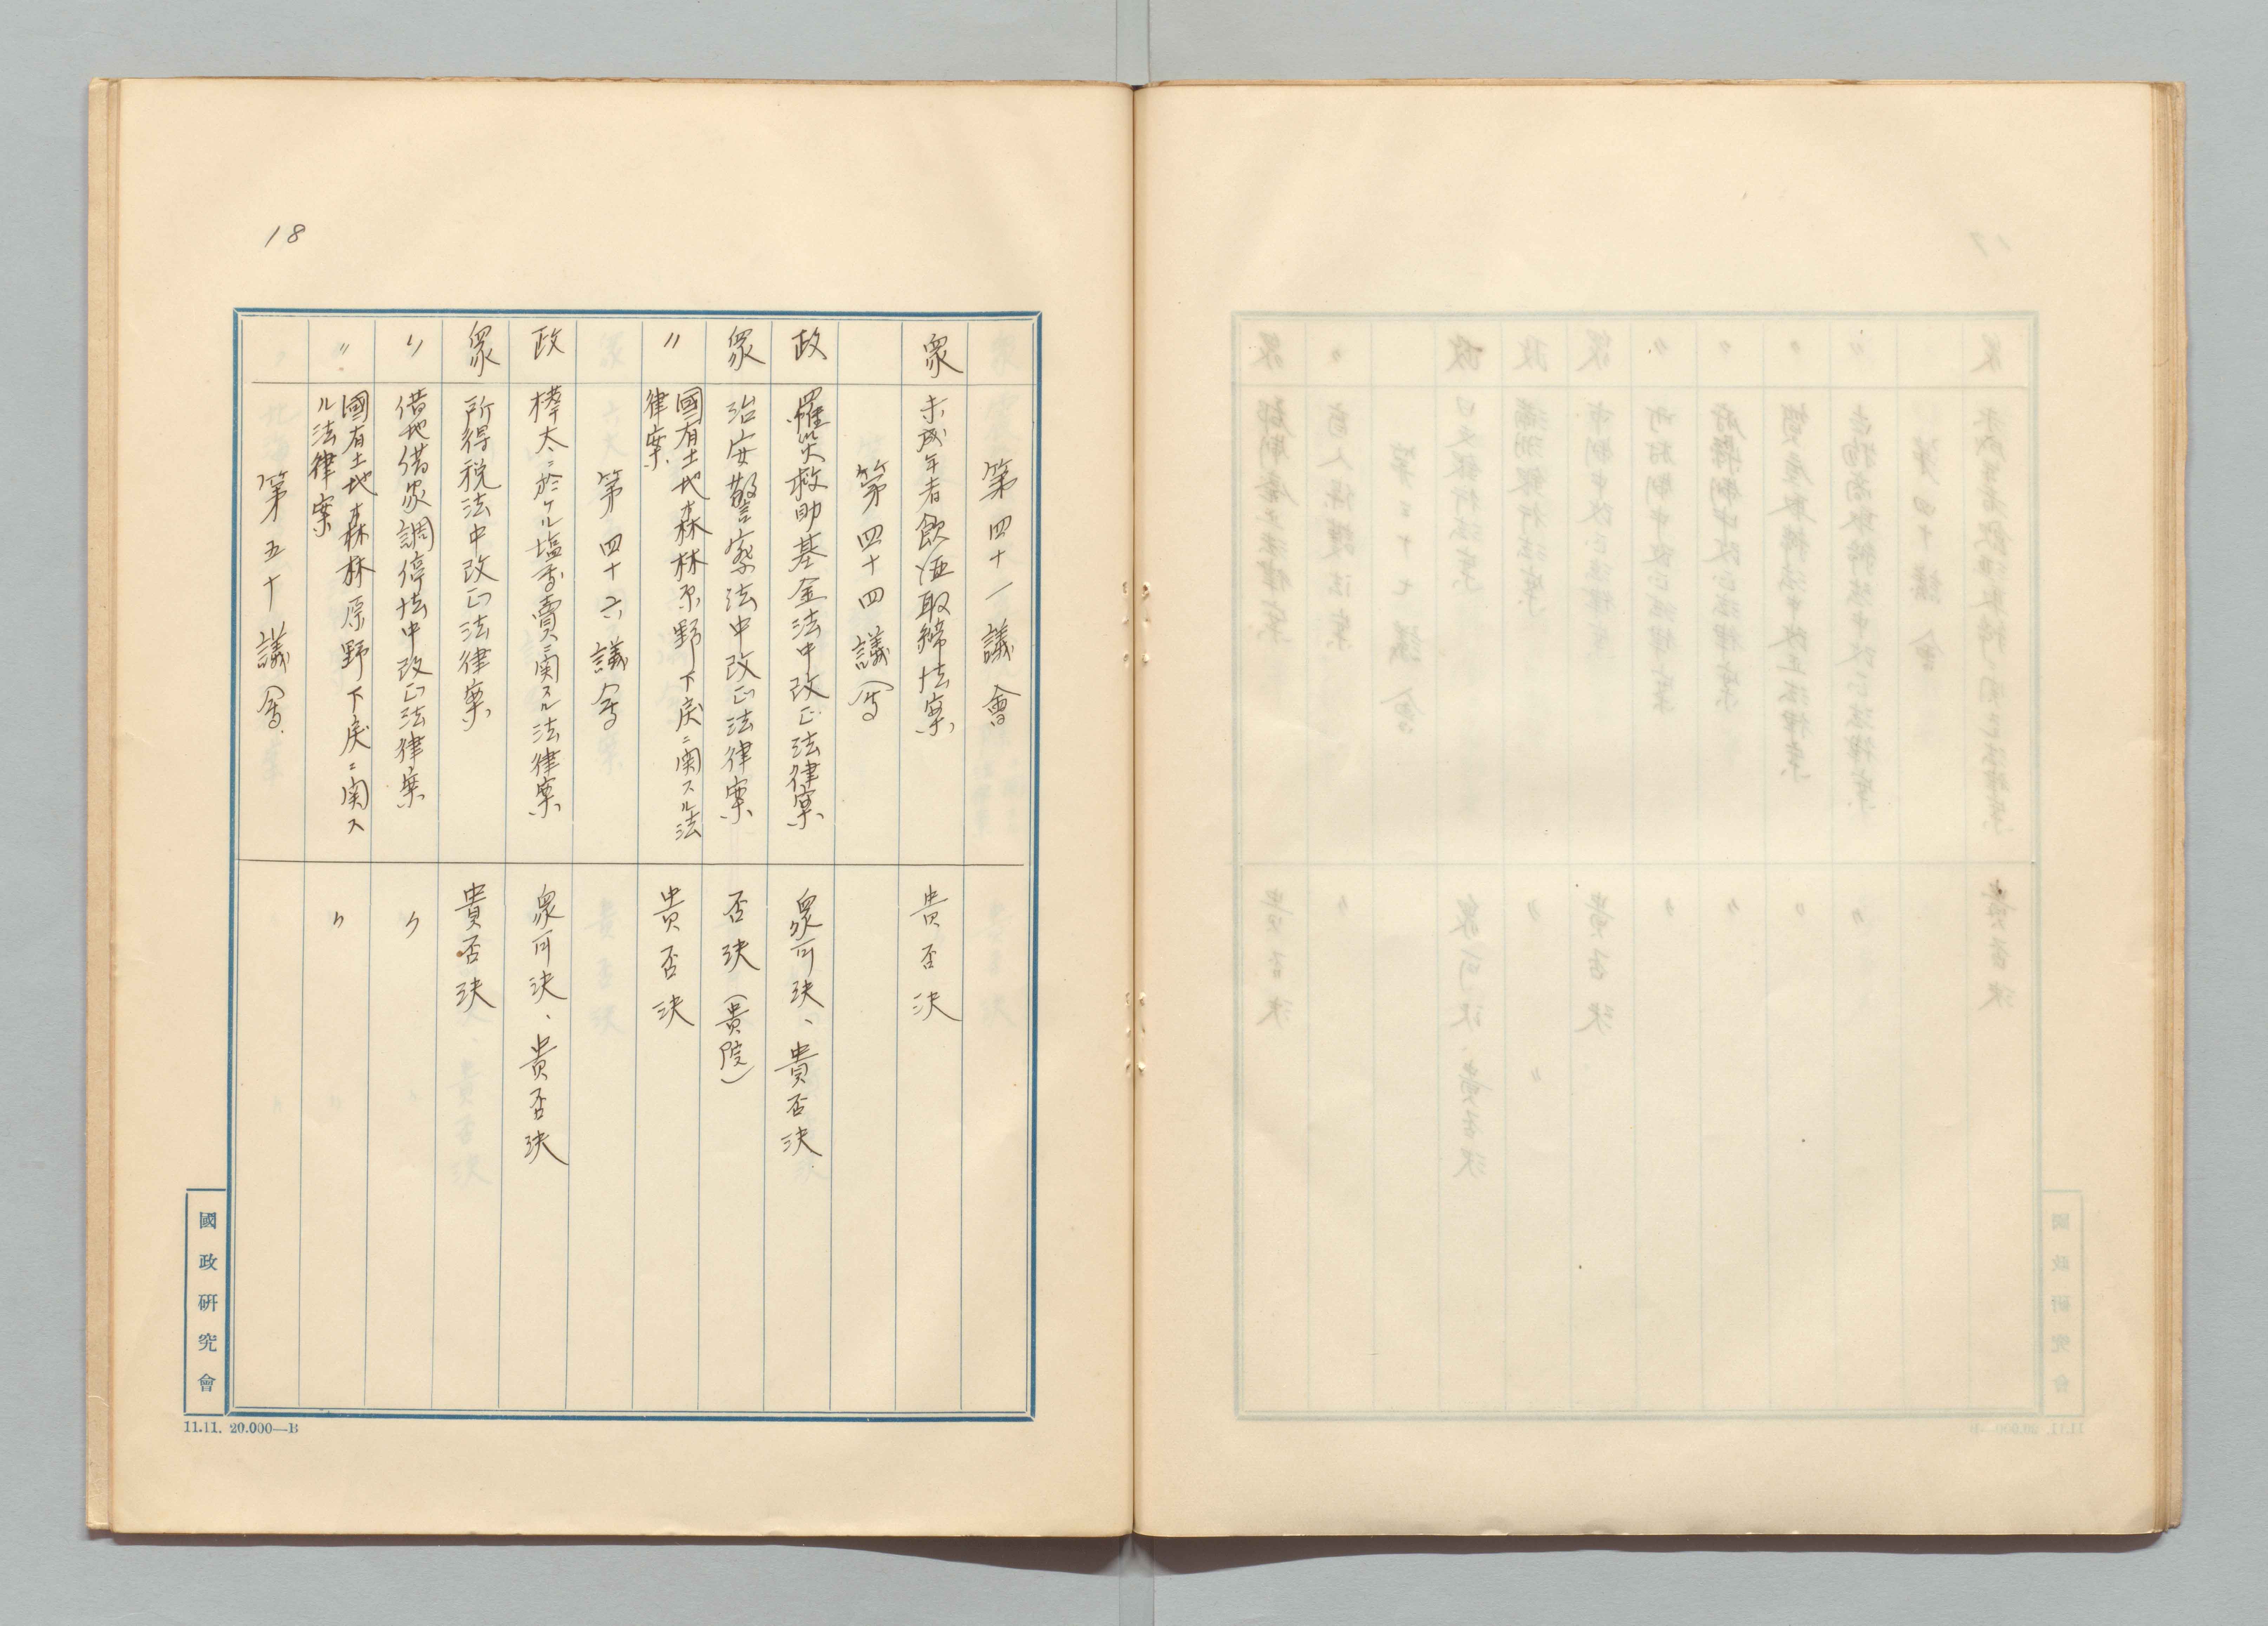 18
第四十一議會
衆 未成年者飲酒取締法案 貴否決
第四十四議会
政 罹災救助基金法中改正法律案 衆可決、貴否決
衆 治安警察法中改正法律案 否決(貴院)
〃 國有土地森林原野下戻ニ関スル法
律案 貴否決
第四十六議会
政 樺太ニ於ケル塩専賣ニ関スル法律案 衆可決、貴否決
衆 所得税法中改正法律案 貴否決
〃 借地借家調停法中改正法律案 〃
〃 國有土地森林原野下戻ニ関ス
ル法律案 〃
第五十議会
國政研究會
11.11. 20.000—B